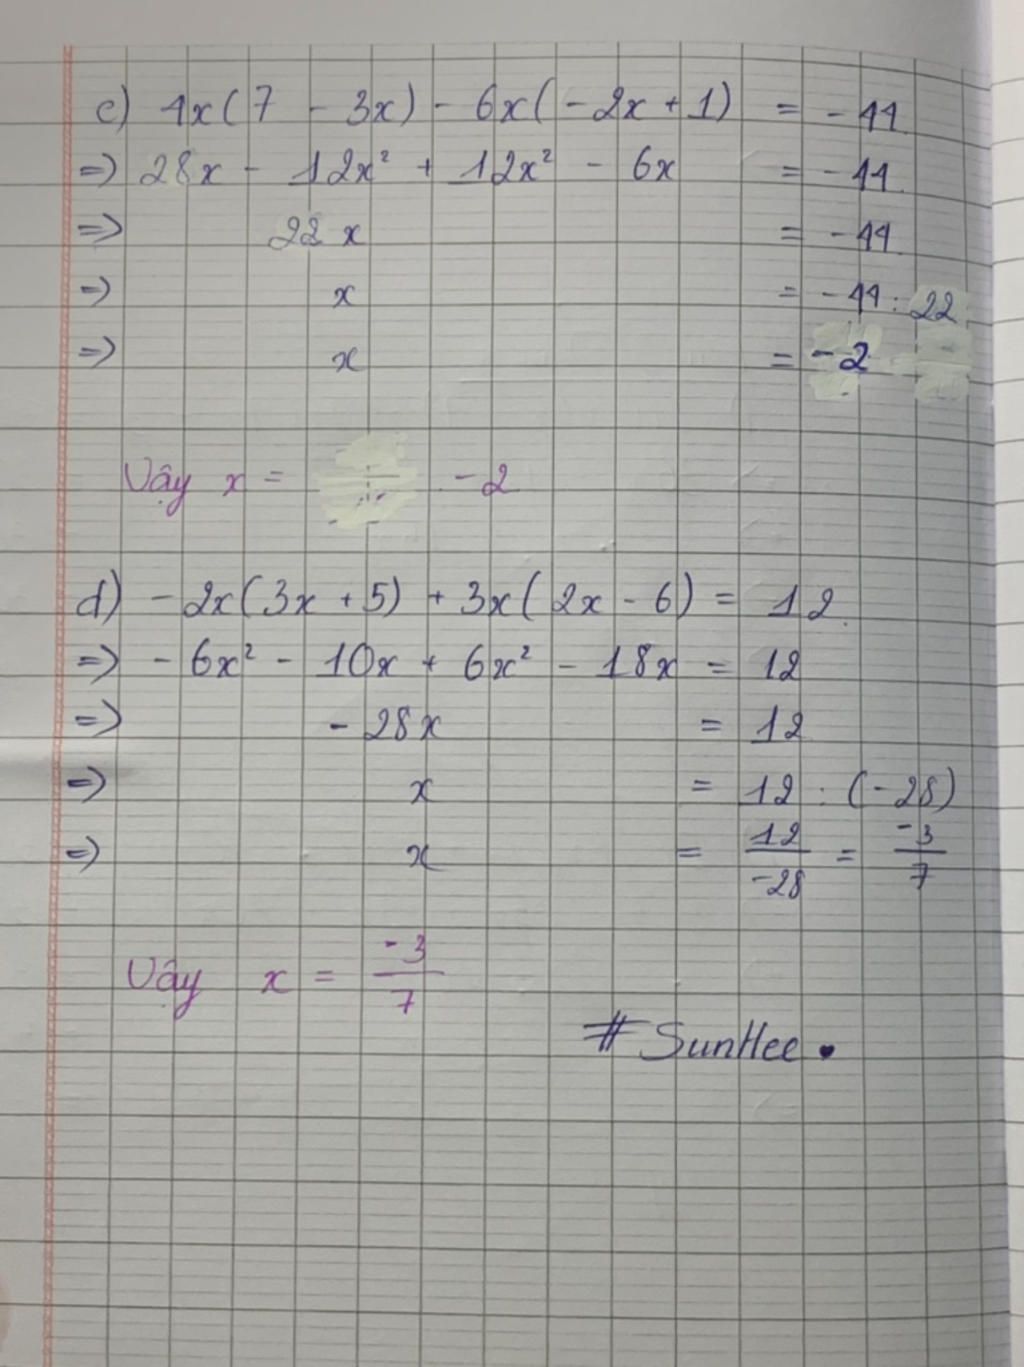 c) 4x(7 - 3x) - 6x(-2x + 1) = -44
=> 28x - 12x² + 12x² - 6x = -44
=> 22x = -44
=> x = -44 : 22
=> x = -2
Vậy x = -2
d) -2x(3x + 5) + 3x(2x - 6) = 12
=> -6x² - 10x + 6x² - 18x = 12
=> -28x = 12
=> x = 12 : (-28)
=> x = 12/-28 = -3/7
Vậy x = -3/7
# SunHee.